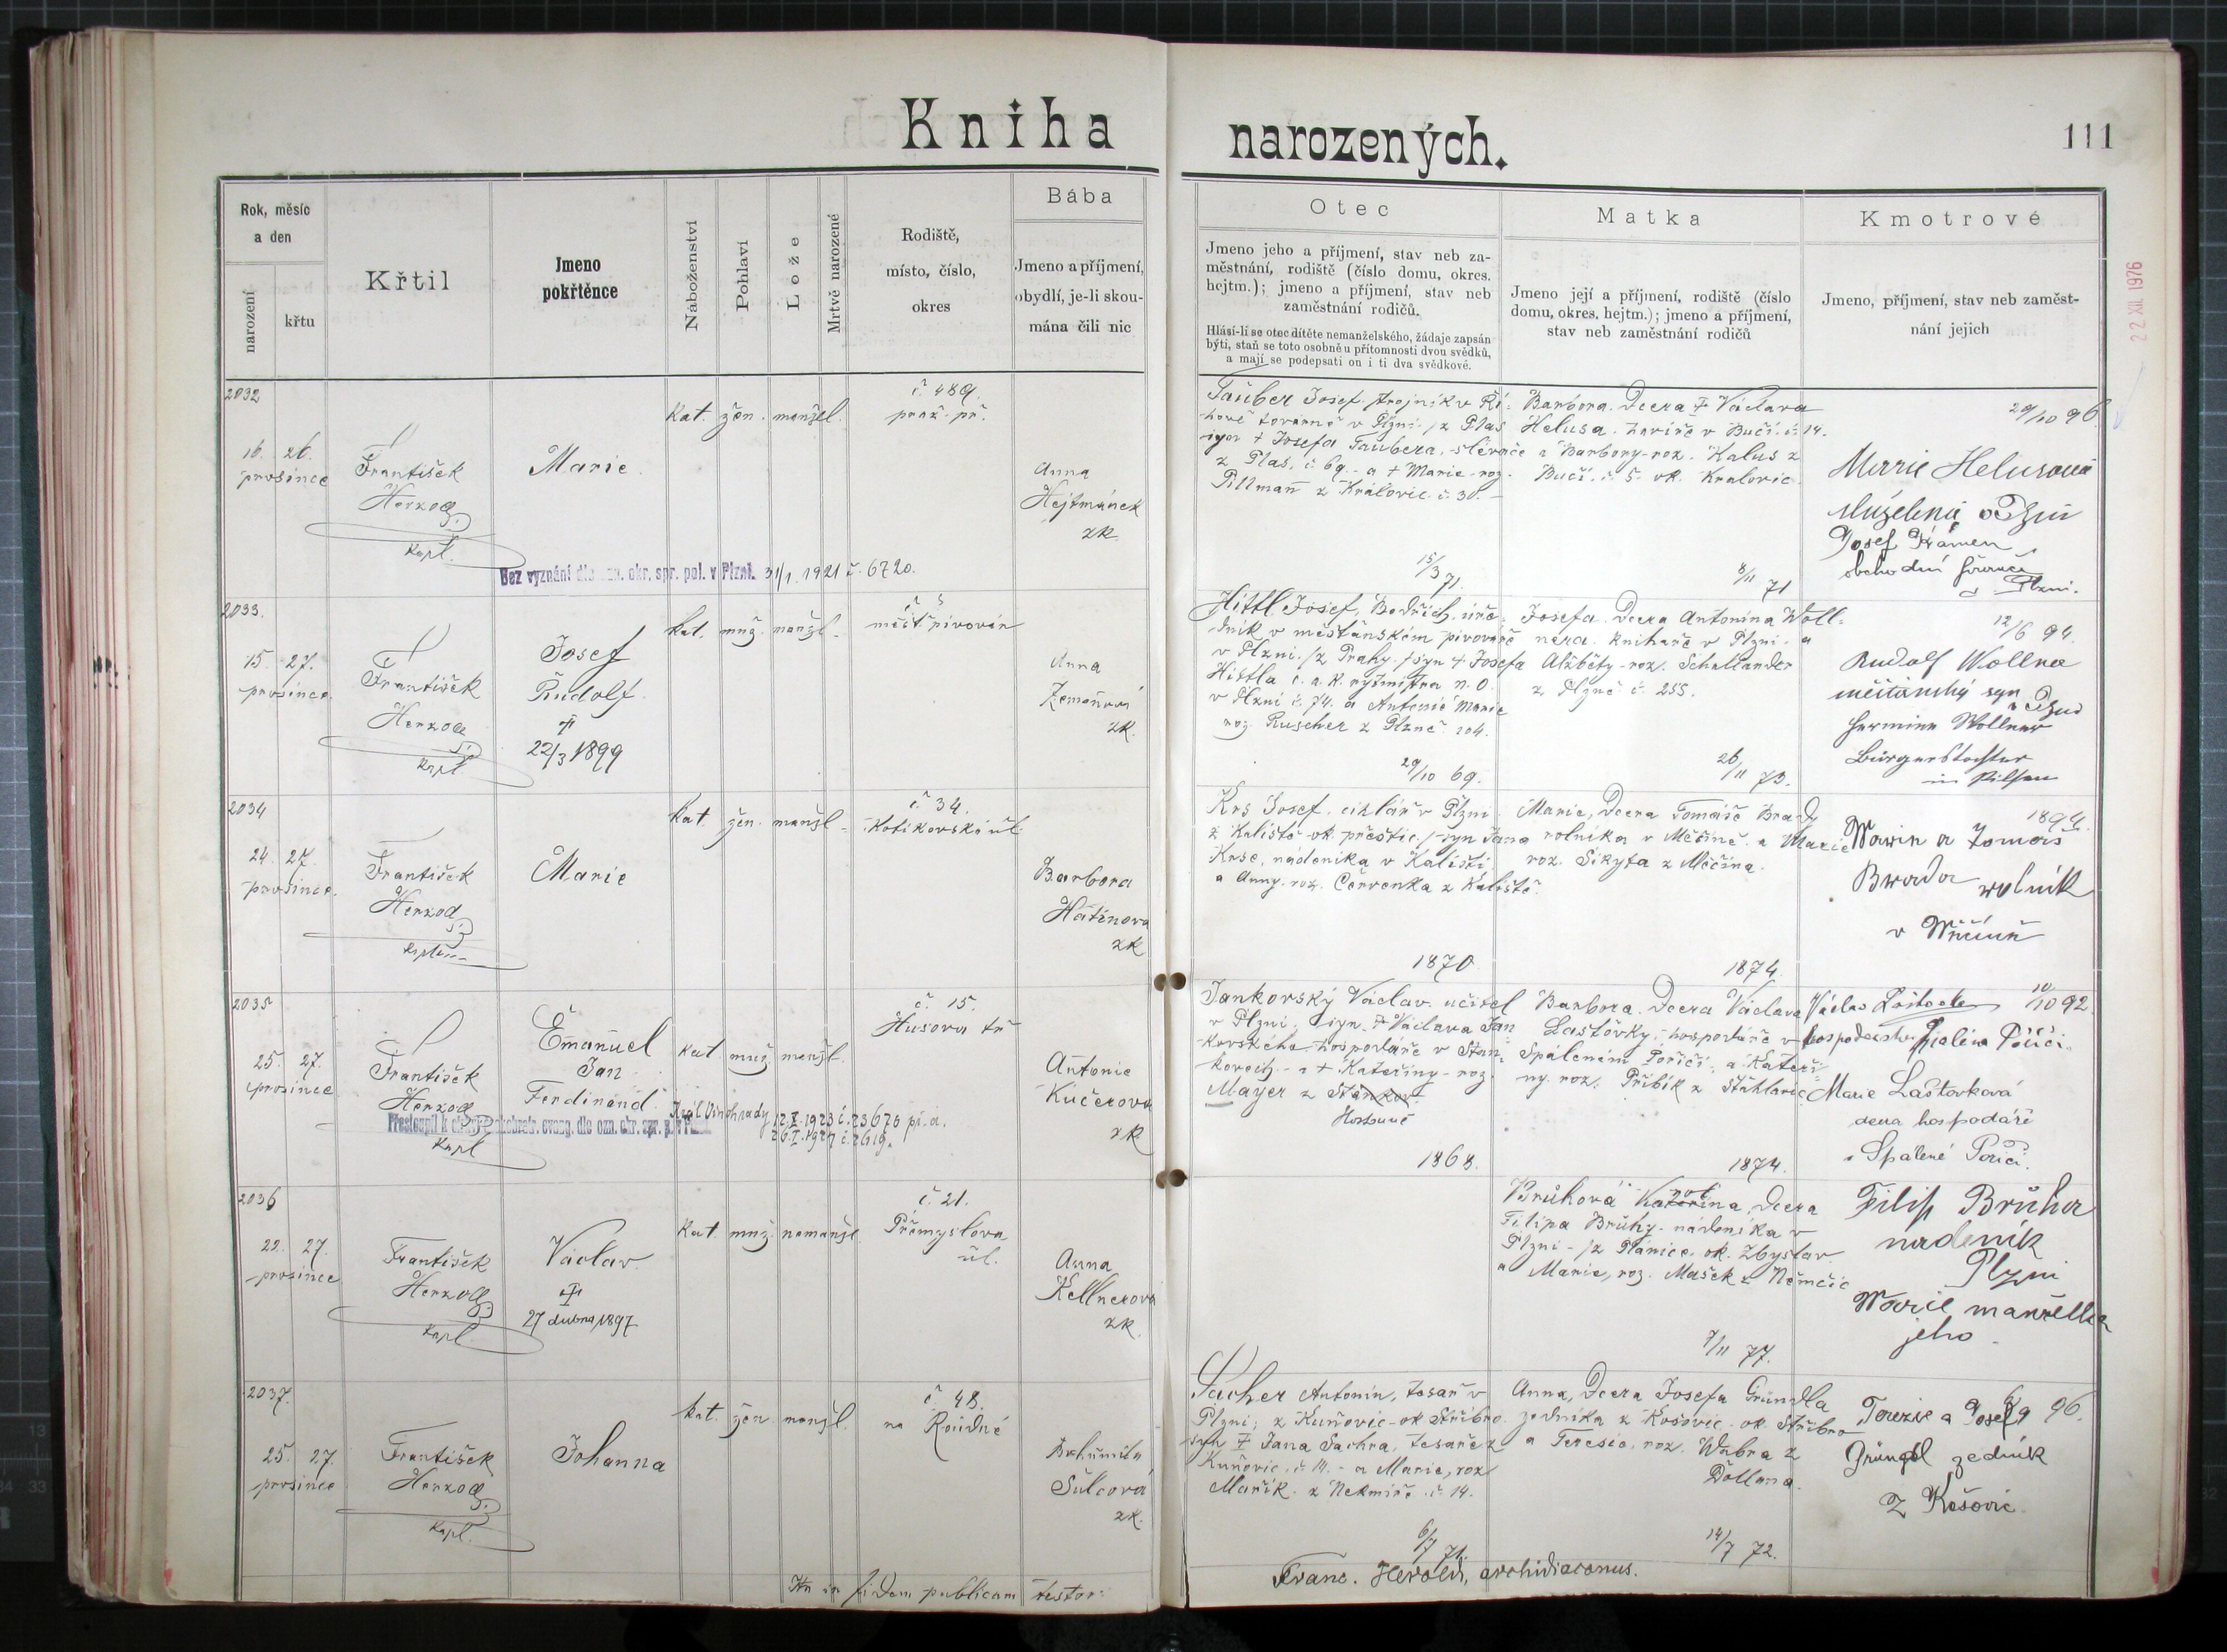 Kniha narozených.
111
22 XII. 1976
Rok, měsíc
a den
narození
křtu
Křtil
Jmeno
pokřtěnce
Náboženství
Pohlaví
Lože
Mrtvě narozené
Rodiště,
místo, číslo,
okres
Bába
Jmeno a příjmení,
obydlí, je-li skou-
mána čili nic
Otec
Jmeno jeho a příjmení, stav neb za-
městnání, rodiště (číslo domu, okres.
hejtm.); jmeno a příjmení, stav neb
zaměstnání rodičů.
Hlásí-li se otec dítěte nemanželského, žádaje zapsán
býti, staň se toto osobně u přítomnosti dvou svědků,
a mají se podepsati on i ti dva svědkové.
Matka
Jmeno její a příjmení, rodiště (číslo
domu, okres. hejtm.); jmeno a příjmení,
stav neb zaměstnání rodičů
Kmotrové
Jmeno, příjmení, stav neb zaměst-
nání jejich
2032
16. 26.
prosince
František
Herzog
kapl.
Marie
kat. žen. manžel.
č. 489.
praž. př.
Anna
Hejtmánek
zk.
Bez vyznání dle ozn. okr. spr. pol. v Plzni. 31/1. 1921 č. 6720.
Tauber Josef, strojník v
továrně v Plzni, z Plas
Josefa Taubera, slévače
z Plas, č. 69. a + Marie roz.
z Kralovic č. 30.
15/3 71.
Barbora, dcera + Václava
Helusa v Bučí č. 14.
a Barbory roz. Kalus z
Bučí č. 5. ok. Kralovic.
8/11 71
29/10 96.
Marie Helusová
v Plzni
Josef Kámen
obchodní
v Plzni.
2033.
15. 27.
prosince
František
Herzog
kapl
Josef
Rudolf
†
22/3 1899
kat. muž. manžl.
č. 5
měšť. pivovár
Anna
Zemanová
zk.
Hittl Josef, Bedřich, úře-
dník v měšťánském pivováře
v Plzni, z Prahy, syn + Josefa
Hittla c. a k. rytmistra n. O.
v Plzni č. 74. a Antonie Marie
roz. Ruscher z Plzně 104.
29/10 69.
Josefa, dcera Antonína Woll-
nera, knihaře v Plzni a
Alžběty roz. Schallander
z Plzně č. 255.
26/11 73.
12/6 94.
Rudolf Wollner
měšťanský syn
v Plzni
Hermine Wollner
Bürgerstochter
in Pilsen
2034
24. 27.
prosince.
František
Herzog
kaplan
Marie
kat. žen. manžl.
č. 34.
Kotikovská ul.
Barbora
Hátinová
zk
Krs Josef, cihlář v Plzni
z Kaliště ok. přeštic, syn Jana
Krse, nádeníka v Kališti
a Anny roz. Červenka z Kaliště.
1870
Marie, dcera Tomáše Brady
rolníka v Měčíně a Marie
roz. Sikyta z Měčína.
1874.
1894.
a Tomáš
Brada rolník
v
2035
25. 27.
prosince
František
Herzog
kapl
Emanuel
Jan
Ferdinand
kat muž. manžl.
č. 15.
Husova tř.
Antonie
Kučerová
zk
Král. Vinohrady 12.X.1923 č. 23670
Jankovský Václav, učitel
v Plzni, syn + Václava Jan-
kovského, hospodáře v Stan-
kovech a + Kateřiny roz.
Mayer z Stankov
1868.
Barbora, dcera Václava
Lastovky, hospodáře v
Spáleném Poříčí, a Kateři-
ny roz. Přibík z Stáhlavic
1874.
10/10 92
Václav
Marie Laštovková
dcera hospodáře
Spálené Poříčí.
2036
22. 27.
prosince
František
Herzog
kapl.
Václav
†
27 dubna 1897
kat. muž. nemanžl.
č. 21.
Přemyslova
ul.
Anna
Kellnerová
zk.
Brůhová Kateřina, dcera
Filipa Brůhy, nádeníka v
Plzni, z Plánice, ok.
a Marie, roz. Mašek z Němčic
7/11 77.
Filip Brůha
nadeník
Plzni
manželka
jeho
2037.
25. 27.
prosince
František
Herzog
kapl.
Johanna
kat. žen. manžl.
č. 48.
na Roudné
Bohumila
Šulcová
zk.
Sacher Antonín, tesař v
Plzni, z Kuňovic ok Stříbro
syn + Jana Sachra, tesaře z
Kuňovic č. 14. a Marie, roz
Mařík z Nekmíře č. 14.
6/7 71.
Anna, dcera Josefa Gründla
zedníka z Kosovic ok. Stříbro
a Teresie, roz. Wabra z
14/7 72.
6/9 96.
Terezie a Josef
Gründl zedník
z Košovic.
in fidem publicam testor:
Franc. Herold, archidiaconus.